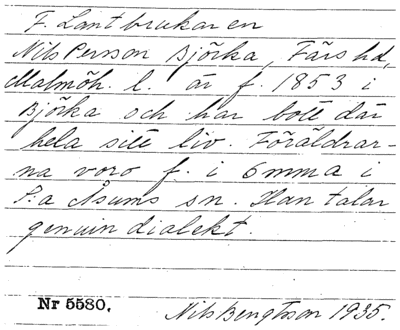 F. Lantbrukaren
Nils Person Björka, Färs hd,
Malmöh. l. är f. 1853 i
Björka och har bott där
hela sitt liv. Föräldrar-
na voro f. i Ömma i
S:a Åsums sn. Han talar
genuin dialekt.
Nr 5580.
Nils Bengtsson 1935.